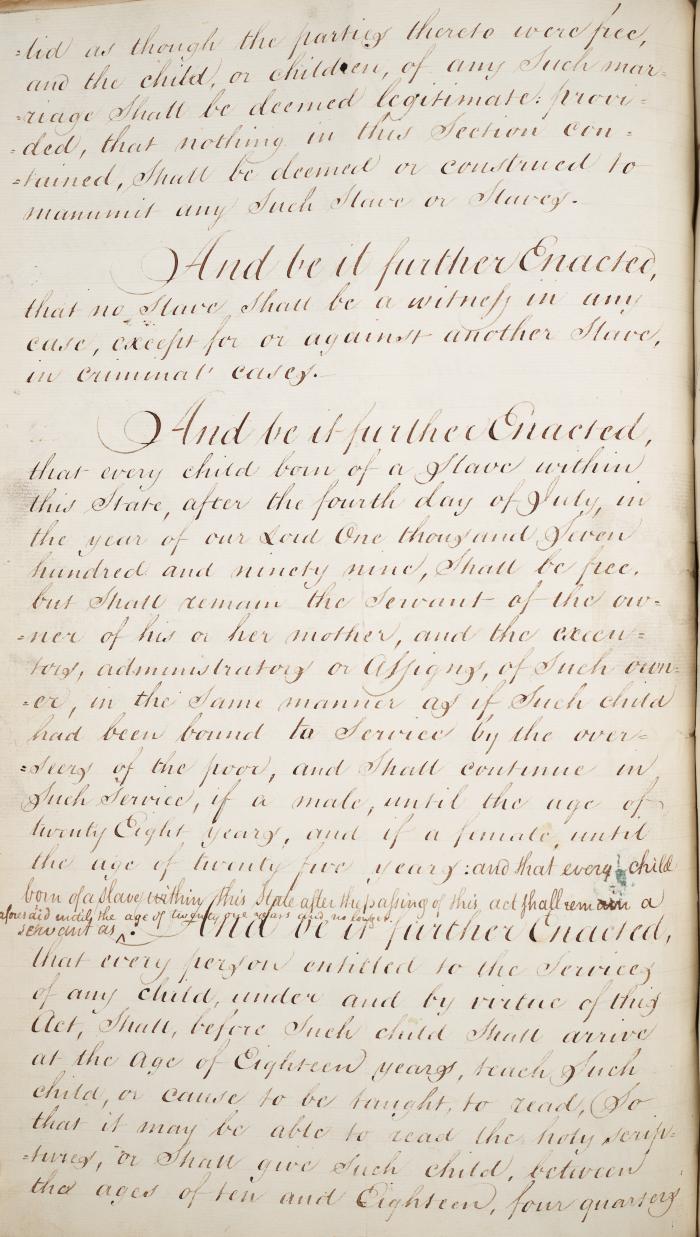 =lid as though the parties thereto were free,
and the child, or children, of any Such mar=
=riage Shall be deemed legitimate: provi=
=ded, that nothing in this Section con=
=tained, Shall be deemed or construed to
manumit any Such Slave or Slaves.
And be it further Enacted,
that no Slave Shall be a witness in any
case, except for or against another Slave,
in criminal cases.
And be it further Enacted,
that every child born of a Slave within
this State, after the fourth day of July, in
the year of our Lord One thousand Seven
hundred and ninety nine, Shall be free.
but Shall remain the Servant of the ow=
=ner of his or her mother, and the execu=
tors, administrators or Assigns, of Such own=
=er, in the Same manner as if Such child
had been bound to Service by the over=
=seers of the poor, and Shall continue in
Such Service, if a male, until the age of
twenty Eight years, and if a female, until
the age of twenty five years: and that every child
born of a slave within this State after the passing of this act shall remain a
aforesaid until the age of twenty one years and no longer.
servant as ^ And be it further Enacted,
that every person entitled to the Services
of any child, under and by virtue of this
Act, Shall, before Such child Shall arrive
at the age of Eighteen years, teach Such
child, or cause to be taught, to read, (So
that it may be able to read the holy scrip=
=tures, or Shall give Such child, between
the ages of ten and Eighteen, four quarters